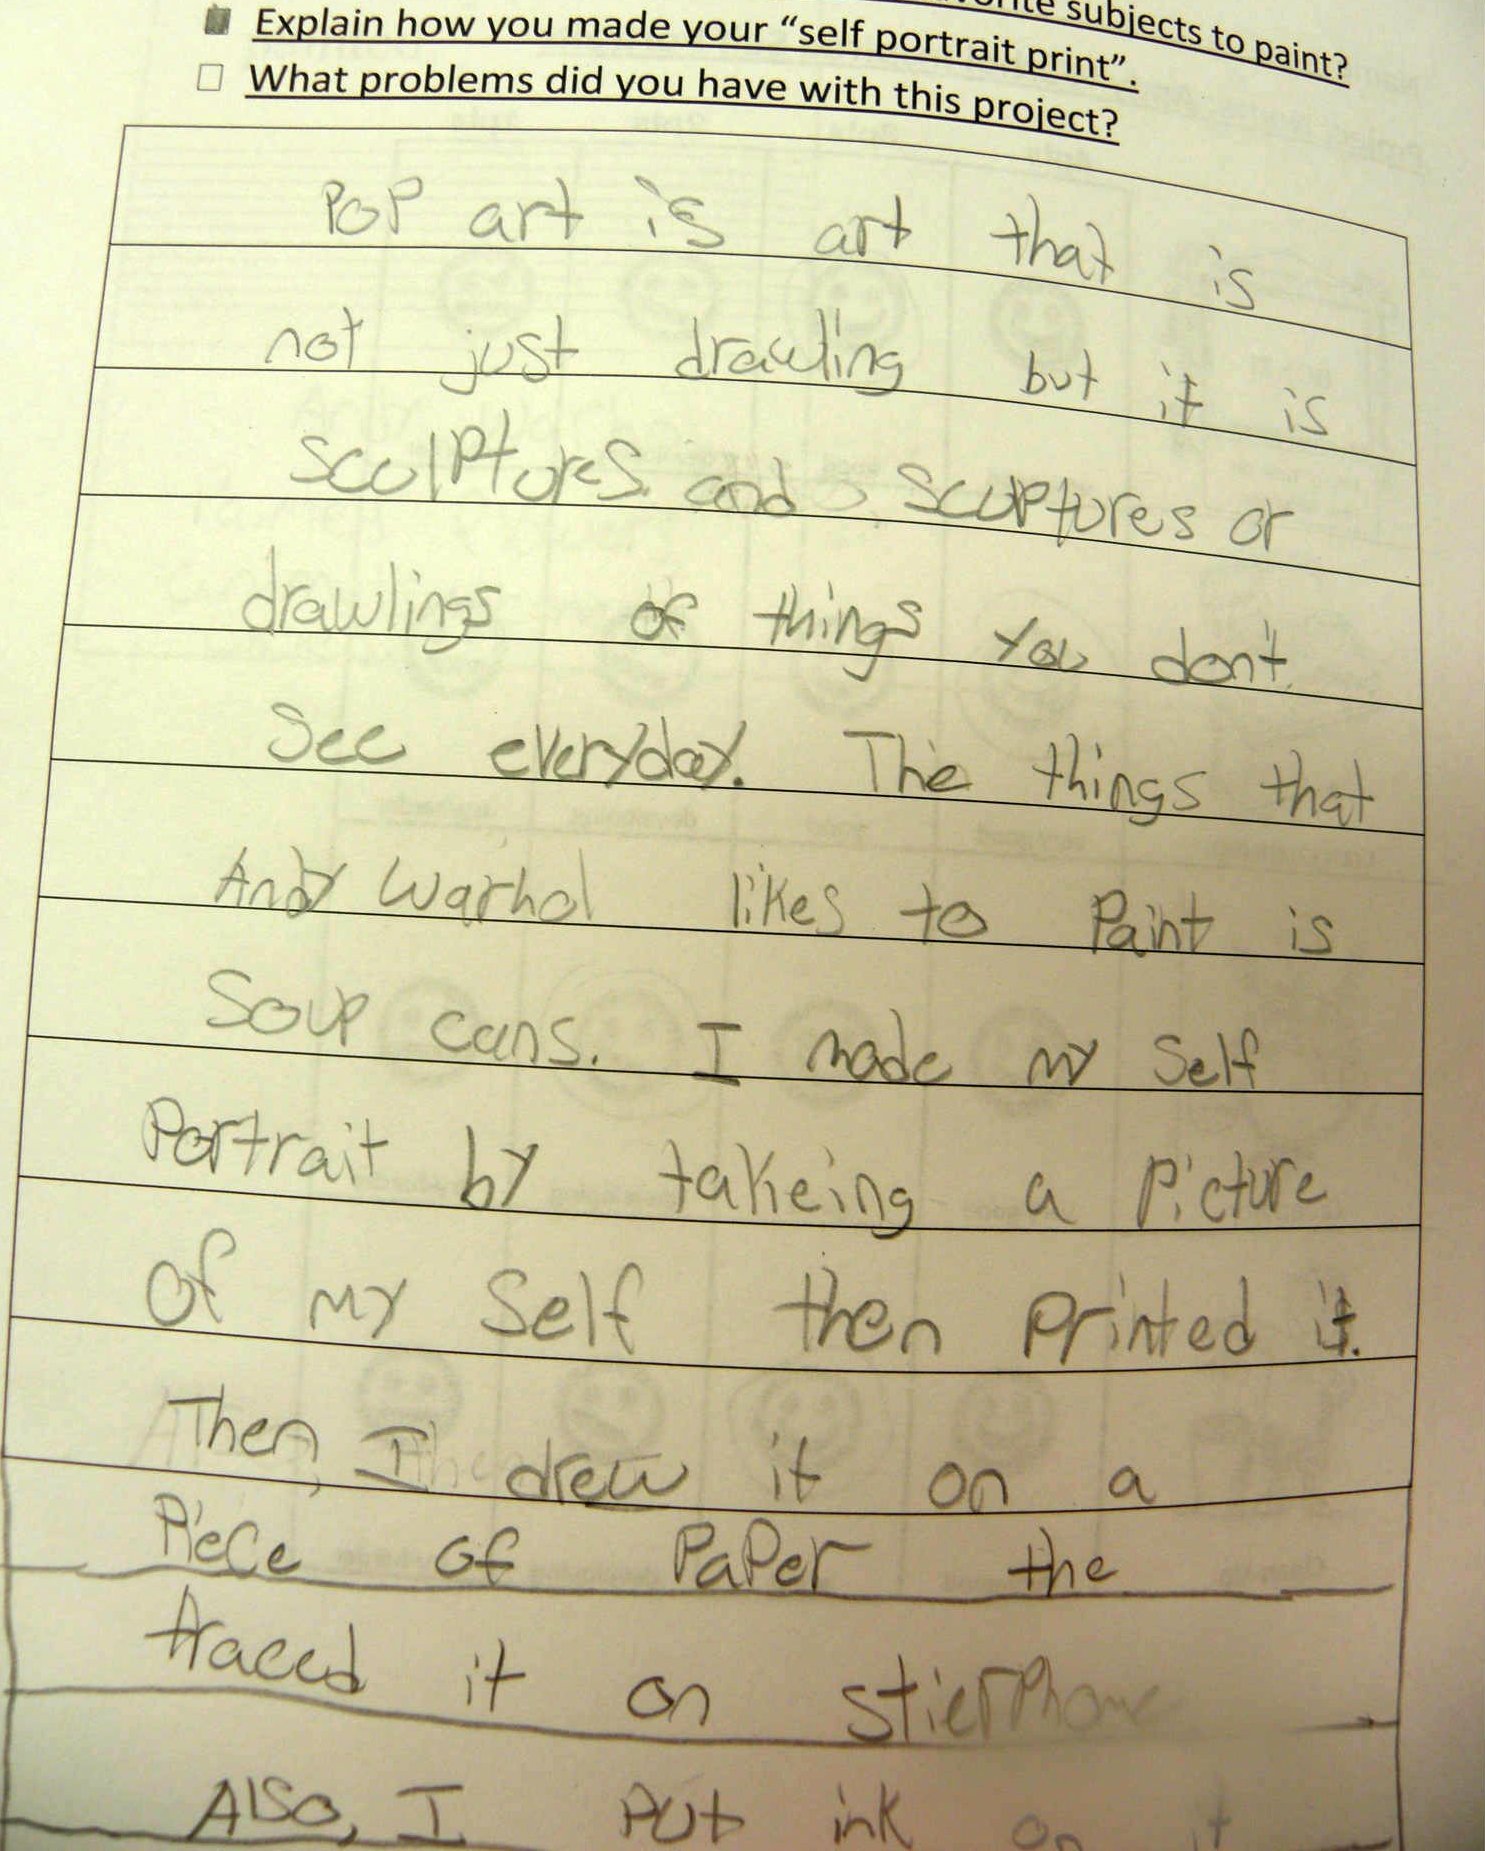 subjects to paint?
Explain how you made your “self portrait print”.
What problems did you have with this project?
POP art is art that is
not just drawling but it is
sculptures and scuptures or
drawlings of things you don't
see everyday. The things that
Andy Warhol likes to Paint is
Soup cans. I made my self
Portrait by takeing a Picture
of my self then printed it.
Then, I drew it on a
Piece of PaPer the
traced it on stierphome
Also, I Put ink on it